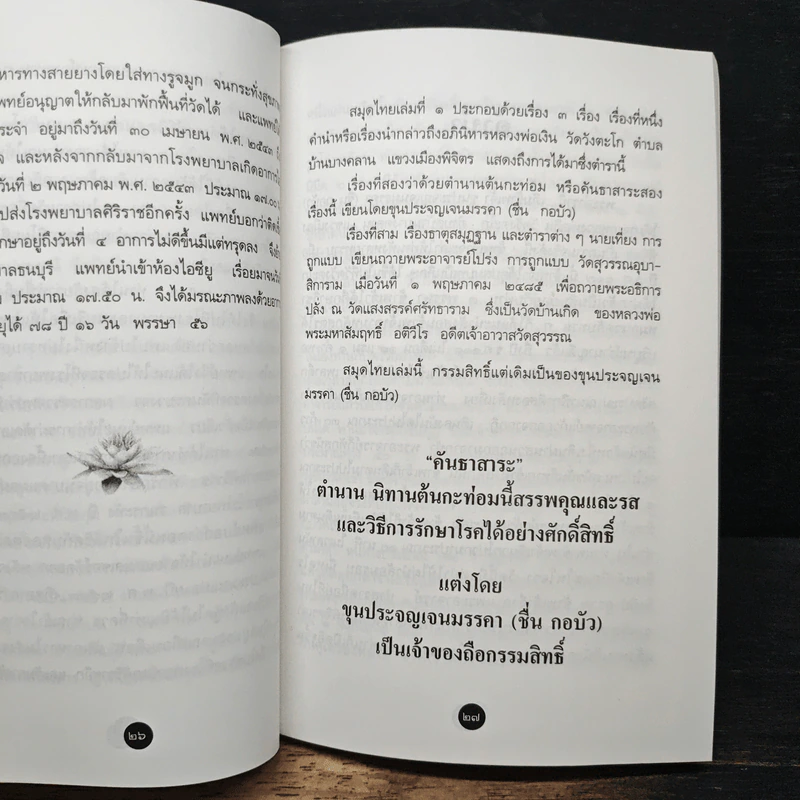 หารทางสายยางโดยใส่ทางรูจมูก จนกระทั่ง
แพทย์อนุญาตให้กลับมาพักฟื้นที่วัดได้ และแพทย์
ระจำ อยู่มาถึงวันที่ ๓๐ เมษายน พ.ศ. ๒๕๔๓
และหลังจากกลับมาจากโรงพยาบาลเกิดอาการ
วันที่ ๒ พฤษภาคม พ.ศ. ๒๕๔๓ ประมาณ ๑๗.๐๐
ปส่งโรงพยาบาลศิริราชอีกครั้ง แพทย์บอกว่าติด
กษาอยู่ถึงวันที่ ๔ อาการไม่ดีขึ้นมีแต่ทรุดลง จึง
าลธนบุรี แพทย์นำเข้าห้องไอซียู เรื่อยมาจน
ประมาณ ๑๗.๕๐ น. จึงได้มรณะภาพลงด้วย
ยุได้ ๗๘ ปี ๑๖ วัน พรรษา ๕๖
๒๖
สมุดไทยเล่มที่ ๑ ประกอบด้วยเรื่อง ๓ เรื่อง เรื่องที่หนึ่ง
คำนำหรือเรื่องนำกล่าวถึงอภินิหารหลวงพ่อเงิน วัดวังตะโก ตำบล
บ้านบางคลาน แขวงเมืองพิจิตร แสดงถึงการได้มาซึ่งตำรานี้
เรื่องที่สองว่าด้วยตำนานต้นกะท่อม หรือคันธาสาระสอง
เรื่องนี้ เขียนโดยขุนประจญเจนมรรคา (ชื่น กอบัว)
เรื่องที่สาม เรื่องธาตุสมุฏฐาน และตำราต่าง ๆ นายเที่ยง การ
ถูกแบบ เขียนถวายพระอาจารย์โปร่ง การถูกแบบ วัดสุวรรณอุบา-
สิการาม เมื่อวันที่ ๑ พฤษภาคม ๒๔๘๕ เพื่อถวายพระอธิการ
ปลั่ง ณ วัดแสงสรรค์ศรัทธาราม ซึ่งเป็นวัดบ้านเกิด ของหลวงพ่อ
พระมหาสัมฤทธิ์ อติวีโร อดีตเจ้าอาวาสวัดสุวรรณ
สมุดไทยเล่มนี้ กรรมสิทธิ์แต่เดิมเป็นของขุนประจญเจน
มรรคา (ชื่น กอบัว)
“คันธาสาระ”
ตำนาน นิทานต้นกะท่อมนี้สรรพคุณและรส
และวิธีการรักษาโรคได้อย่างศักดิ์สิทธิ์
แต่งโดย
ขุนประจญเจนมรรคา (ชื่น กอบัว)
เป็นเจ้าของถือกรรมสิทธิ์
๒๗